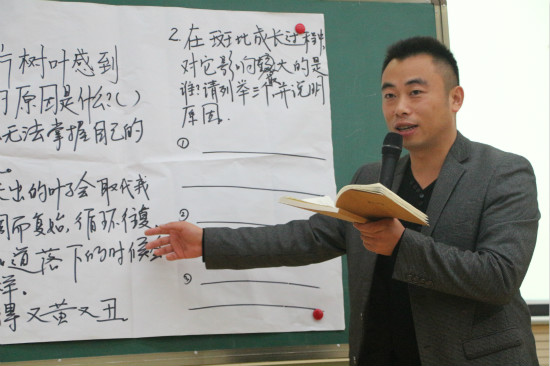 片树叶感到
原因是什么?( )
无法掌握自己的
出的叶子会取代我
周而复始,循环往复
道落下的时候
样.
得又黄又丑
2. 在斑比成长过程中,
对它影响较大的是
谁?请列举三个并说明
原因.
①
②
③